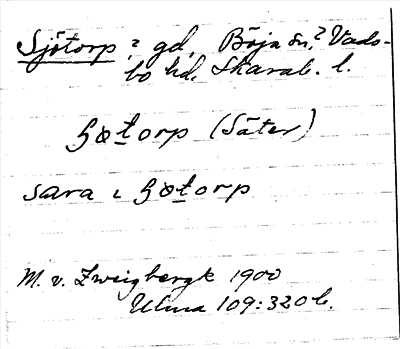 Sjötorp ? gd, Böja sn, ? Vads-
bo hd, Skarab. l.
ɧøt̲orp (Säter)
sara ɩ ɧøt̲orp
M. v. Zweigbergk 1900
Ulma 109:320 b.